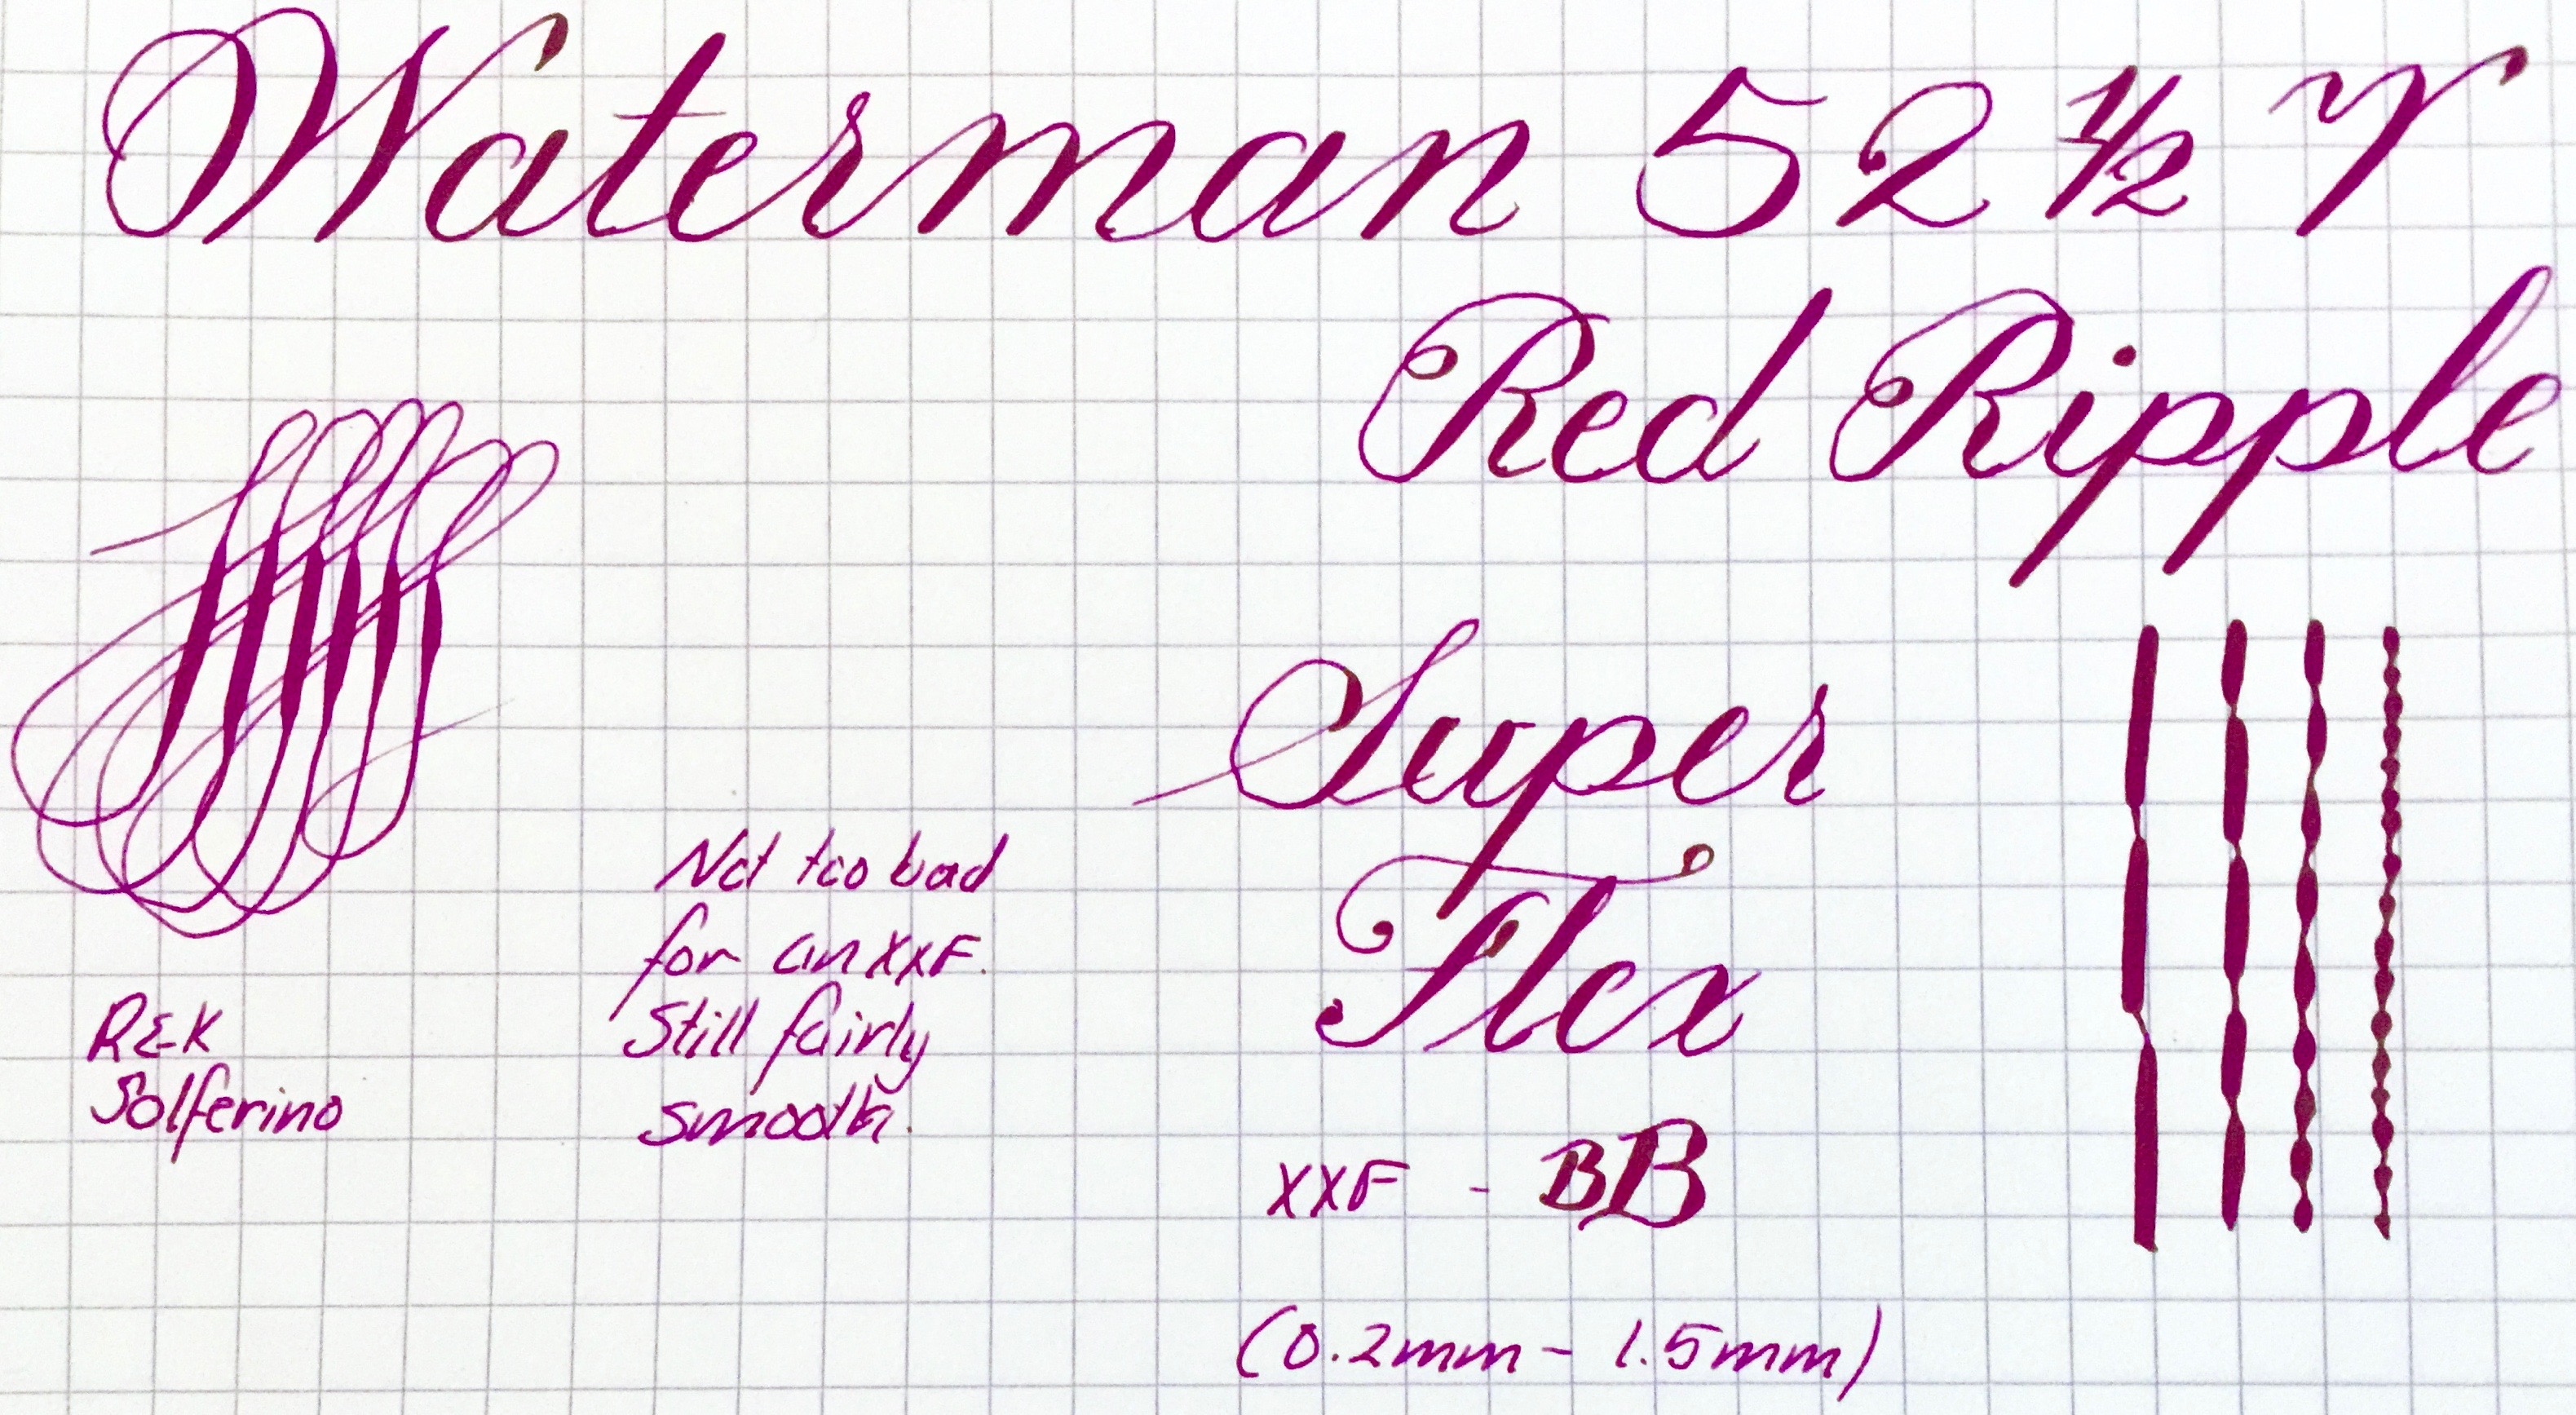 Waterman 52 ½ V
Red Ripple
Super
Flex
Not too bad
for an XXF.
Still fairly
smooth.
R&K
Solferino
XXF - BB
(0.2mm - 1.5mm)